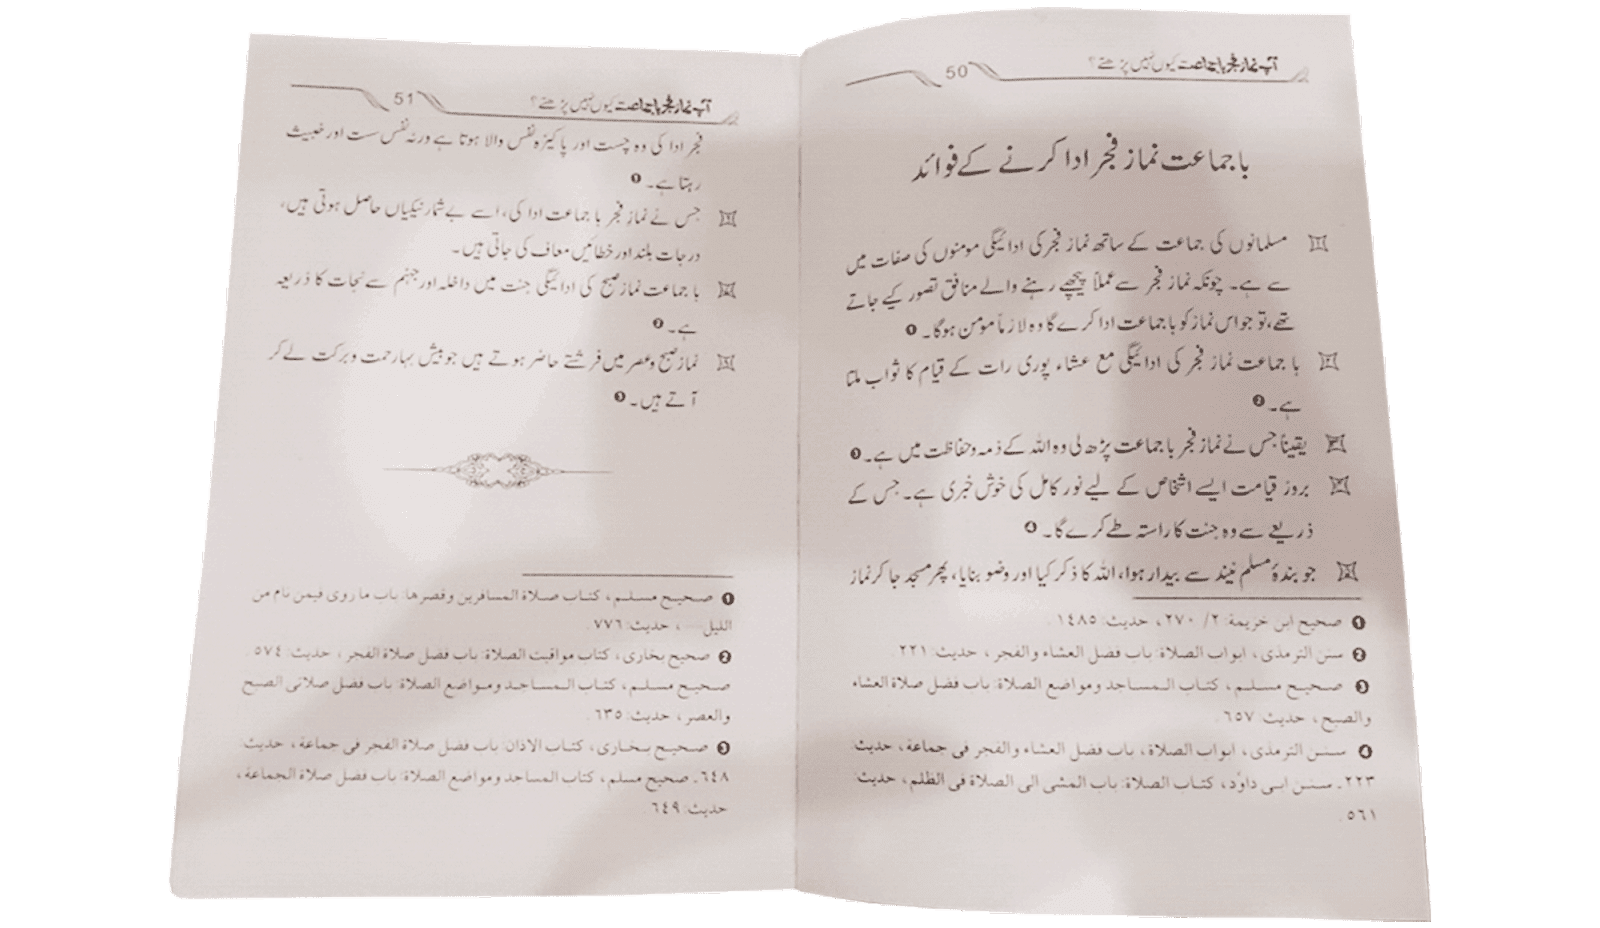 آپ نماز فجر باجماعت کیوں نہیں پڑھتے؟ 50
باجماعت نماز فجر ادا کرنے کے فوائد
۱ مسلمانوں کی جماعت کے ساتھ نماز فجر کی ادائیگی مومنوں کی صفات میں
سے ہے۔ چونکہ نماز فجر سے عملاً پیچھے رہنے والے منافق تصور کیے جاتے
تھے، تو جو اس نماز کو باجماعت ادا کرے گا وہ لازماً مومن ہوگا۔ ❶
۲ با جماعت نماز فجر کی ادائیگی مع عشاء پوری رات کے قیام کا ثواب ملتا
ہے۔ ❷
۳ یقیناً جس نے نماز فجر باجماعت پڑھ لی وہ اللہ کے ذمہ و حفاظت میں ہے۔ ❸
۴ بروز قیامت ایسے اشخاص کے لیے نور کامل کی خوش خبری ہے۔ جس کے
ذریعے سے وہ جنت کا راستہ طے کرے گا۔ ❹
۵ جو بندۂ مسلم نیند سے بیدار ہوا، اللہ کا ذکر کیا اور وضو بنایا، پھر مسجد جا کر نماز
❶ صحیح ابن خزیمة: ٢/ ٢٧٠، حدیث: ١٤٨٥.
❷ سنن الترمذی، ابواب الصلاة: باب فضل العشاء والفجر، حدیث: ٢٢١.
❸ صحیح مسلم، کتاب المساجد ومواضع الصلاة: باب فضل صلاة العشاء
والصبح، حدیث: ٦٥٧.
❹ سنن الترمذی، ابواب الصلاة، باب فضل العشاء والفجر فی جماعة، حدیث:
٢٢٣۔ سنن ابی داوٗد، کتاب الصلاة: باب المشی الی الصلاة فی الظلم، حدیث:
٥٦١.
آپ نماز فجر باجماعت کیوں نہیں پڑھتے؟ 51
فجر ادا کی وہ چست اور پاکیزہ نفس والا ہوتا ہے ورنہ نفس ست اور خبیث
رہتا ہے۔ ❶
۶ جس نے نماز فجر با جماعت ادا کی، اسے بے شمار نیکیاں حاصل ہوتی ہیں،
درجات بلند اور خطائیں معاف کی جاتی ہیں۔
۷ با جماعت نماز صبح کی ادائیگی جنت میں داخلہ اور جہنم سے نجات کا ذریعہ
ہے۔ ❷
۸ نماز صبح و عصر میں فرشتے حاضر ہوتے ہیں جو بیش بہا رحمت و برکت لے کر
آتے ہیں۔ ❸
❶ صحیح مسلم، کتاب صلاة المسافرین وقصرها: باب ما روی فیمن نام من
اللیل.....، حدیث: ٧٧٦.
❷ صحیح بخاری، کتاب مواقیت الصلاة: باب فضل صلاة الفجر، حدیث: ٥٧٤.
صحیح مسلم، کتاب المساجد ومواضع الصلاة: باب فضل صلاتی الصبح
والعصر، حدیث: ٦٣٥.
❸ صحیح بخاری، کتاب الاذان: باب فضل صلاة الفجر فی جماعة، حدیث:
٦٤٨۔ صحیح مسلم، کتاب المساجد ومواضع الصلاة: باب فضل صلاة الجماعة،
حدیث: ٦٤٩.